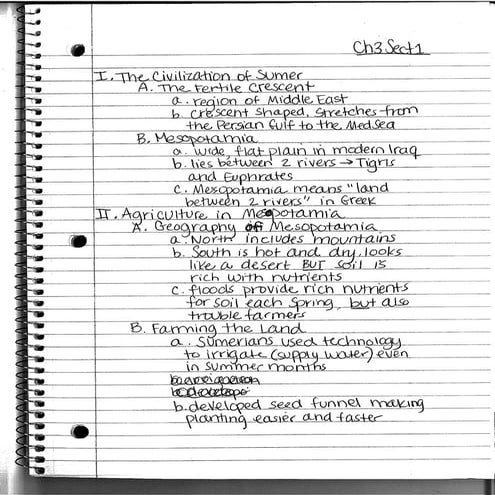 Ch3 Sect 1
I. The Civilization of Sumer
A. The Fertile Crescent
a. region of Middle East
b. crescent shaped, stretches from
the Persian Gulf to the Med Sea
B. Mesopotamia
a. wide, flat plain in modern Iraq
b. lies between 2 rivers → Tigris
and Euphrates
c. Mesopotamia means "land
between 2 rivers" in Greek
II. Agriculture in Mesopotamia
A. Geography of Mesopotamia
a. North includes mountains
b. South is hot and dry, looks
like a desert BUT soil is
rich with nutrients
c. floods provide rich nutrients
for soil each spring, but also
trouble farmers
B. Farming the Land
a. Sumerians used technology
to irrigate (supply water) even
in summer months
b. developed seed funnel making
planting easier and faster